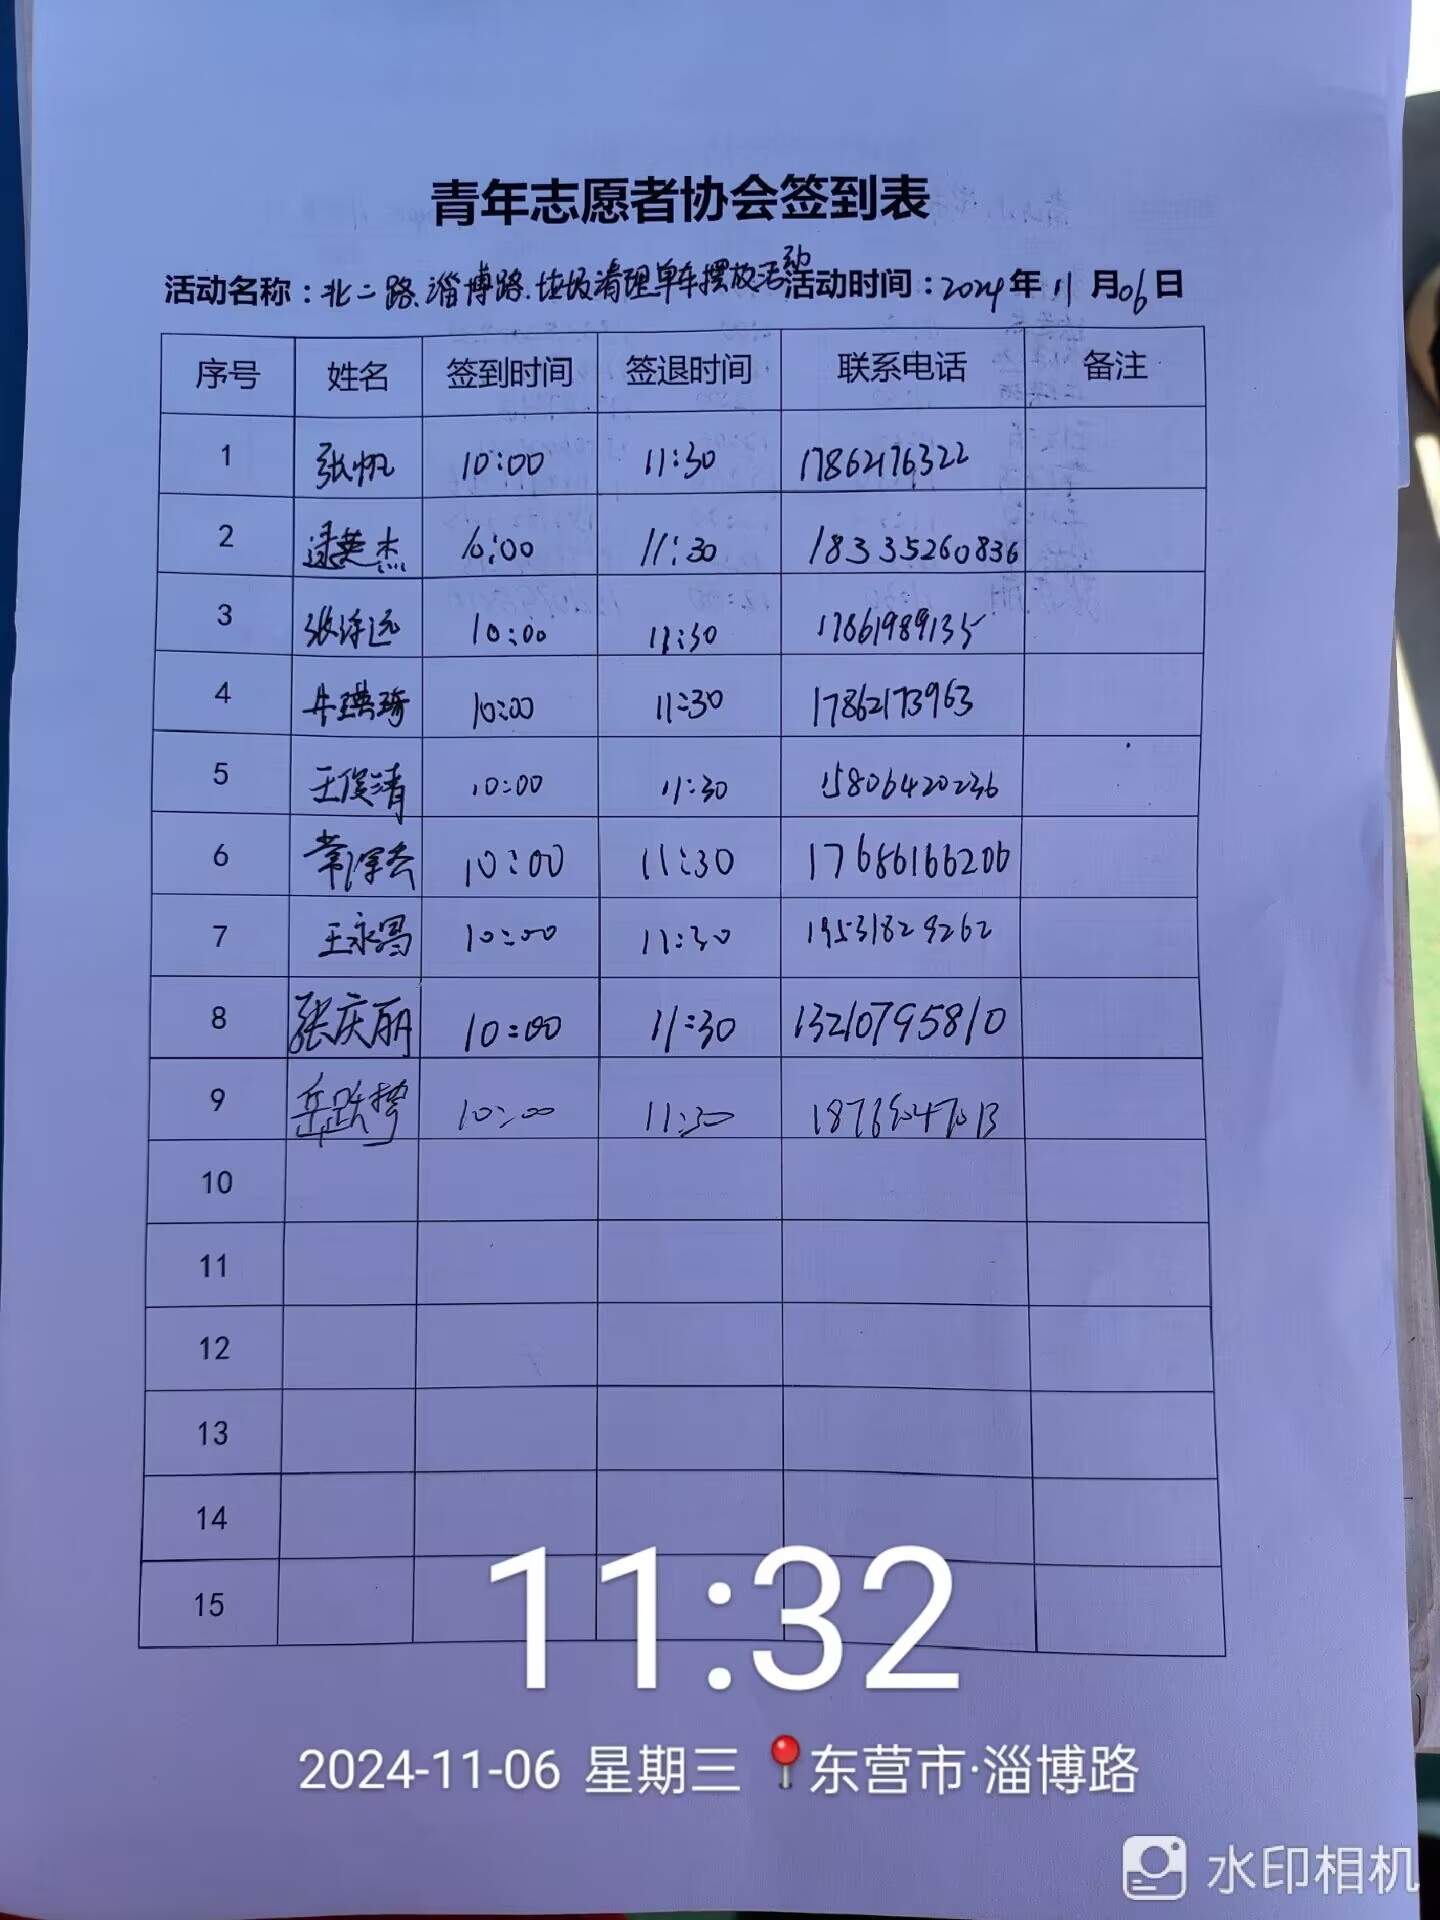 青年志愿者协会签到表
活动名称：北二路、淄博路、垃圾清理单车摆放活动 活动时间：2024年11月06日
序号 姓名 签到时间 签退时间 联系电话 备注
1 张帆 10:00 11:30 17862176322
2 逯英杰 10:00 11:30 18335260836
3 10:00 11:30 17861989135
4 牛琪琦 10:00 11:30 17862173963
5 王俊清 10:00 11:30 15806420236
6 10:00 11:30 17686166206
7 王永昌 10:00 11:30 19531829262
8 张庆丽 10:00 11:30 13210795810
9 10:00 11:30
10
11
12
13
14
15
11:32
2024-11-06 星期三 东营市·淄博路
水印相机